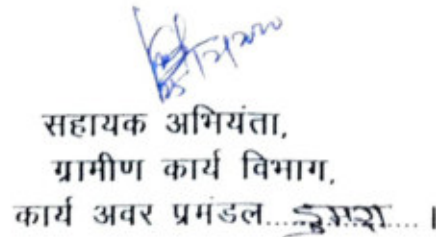 सहायक अभियंता,
ग्रामीण कार्य विभाग,
कार्य अवर प्रमंडल.....डुमरा..... ।